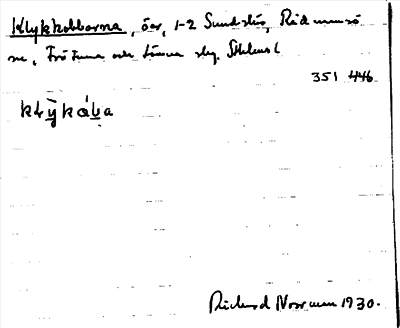 Klykkobbarna, öar, 1-2 Sundskär, Rådmansö
sn, Frötuna och Länna slg. Sthlms l
351 446
klỳkába
Richard Norrman 1930.